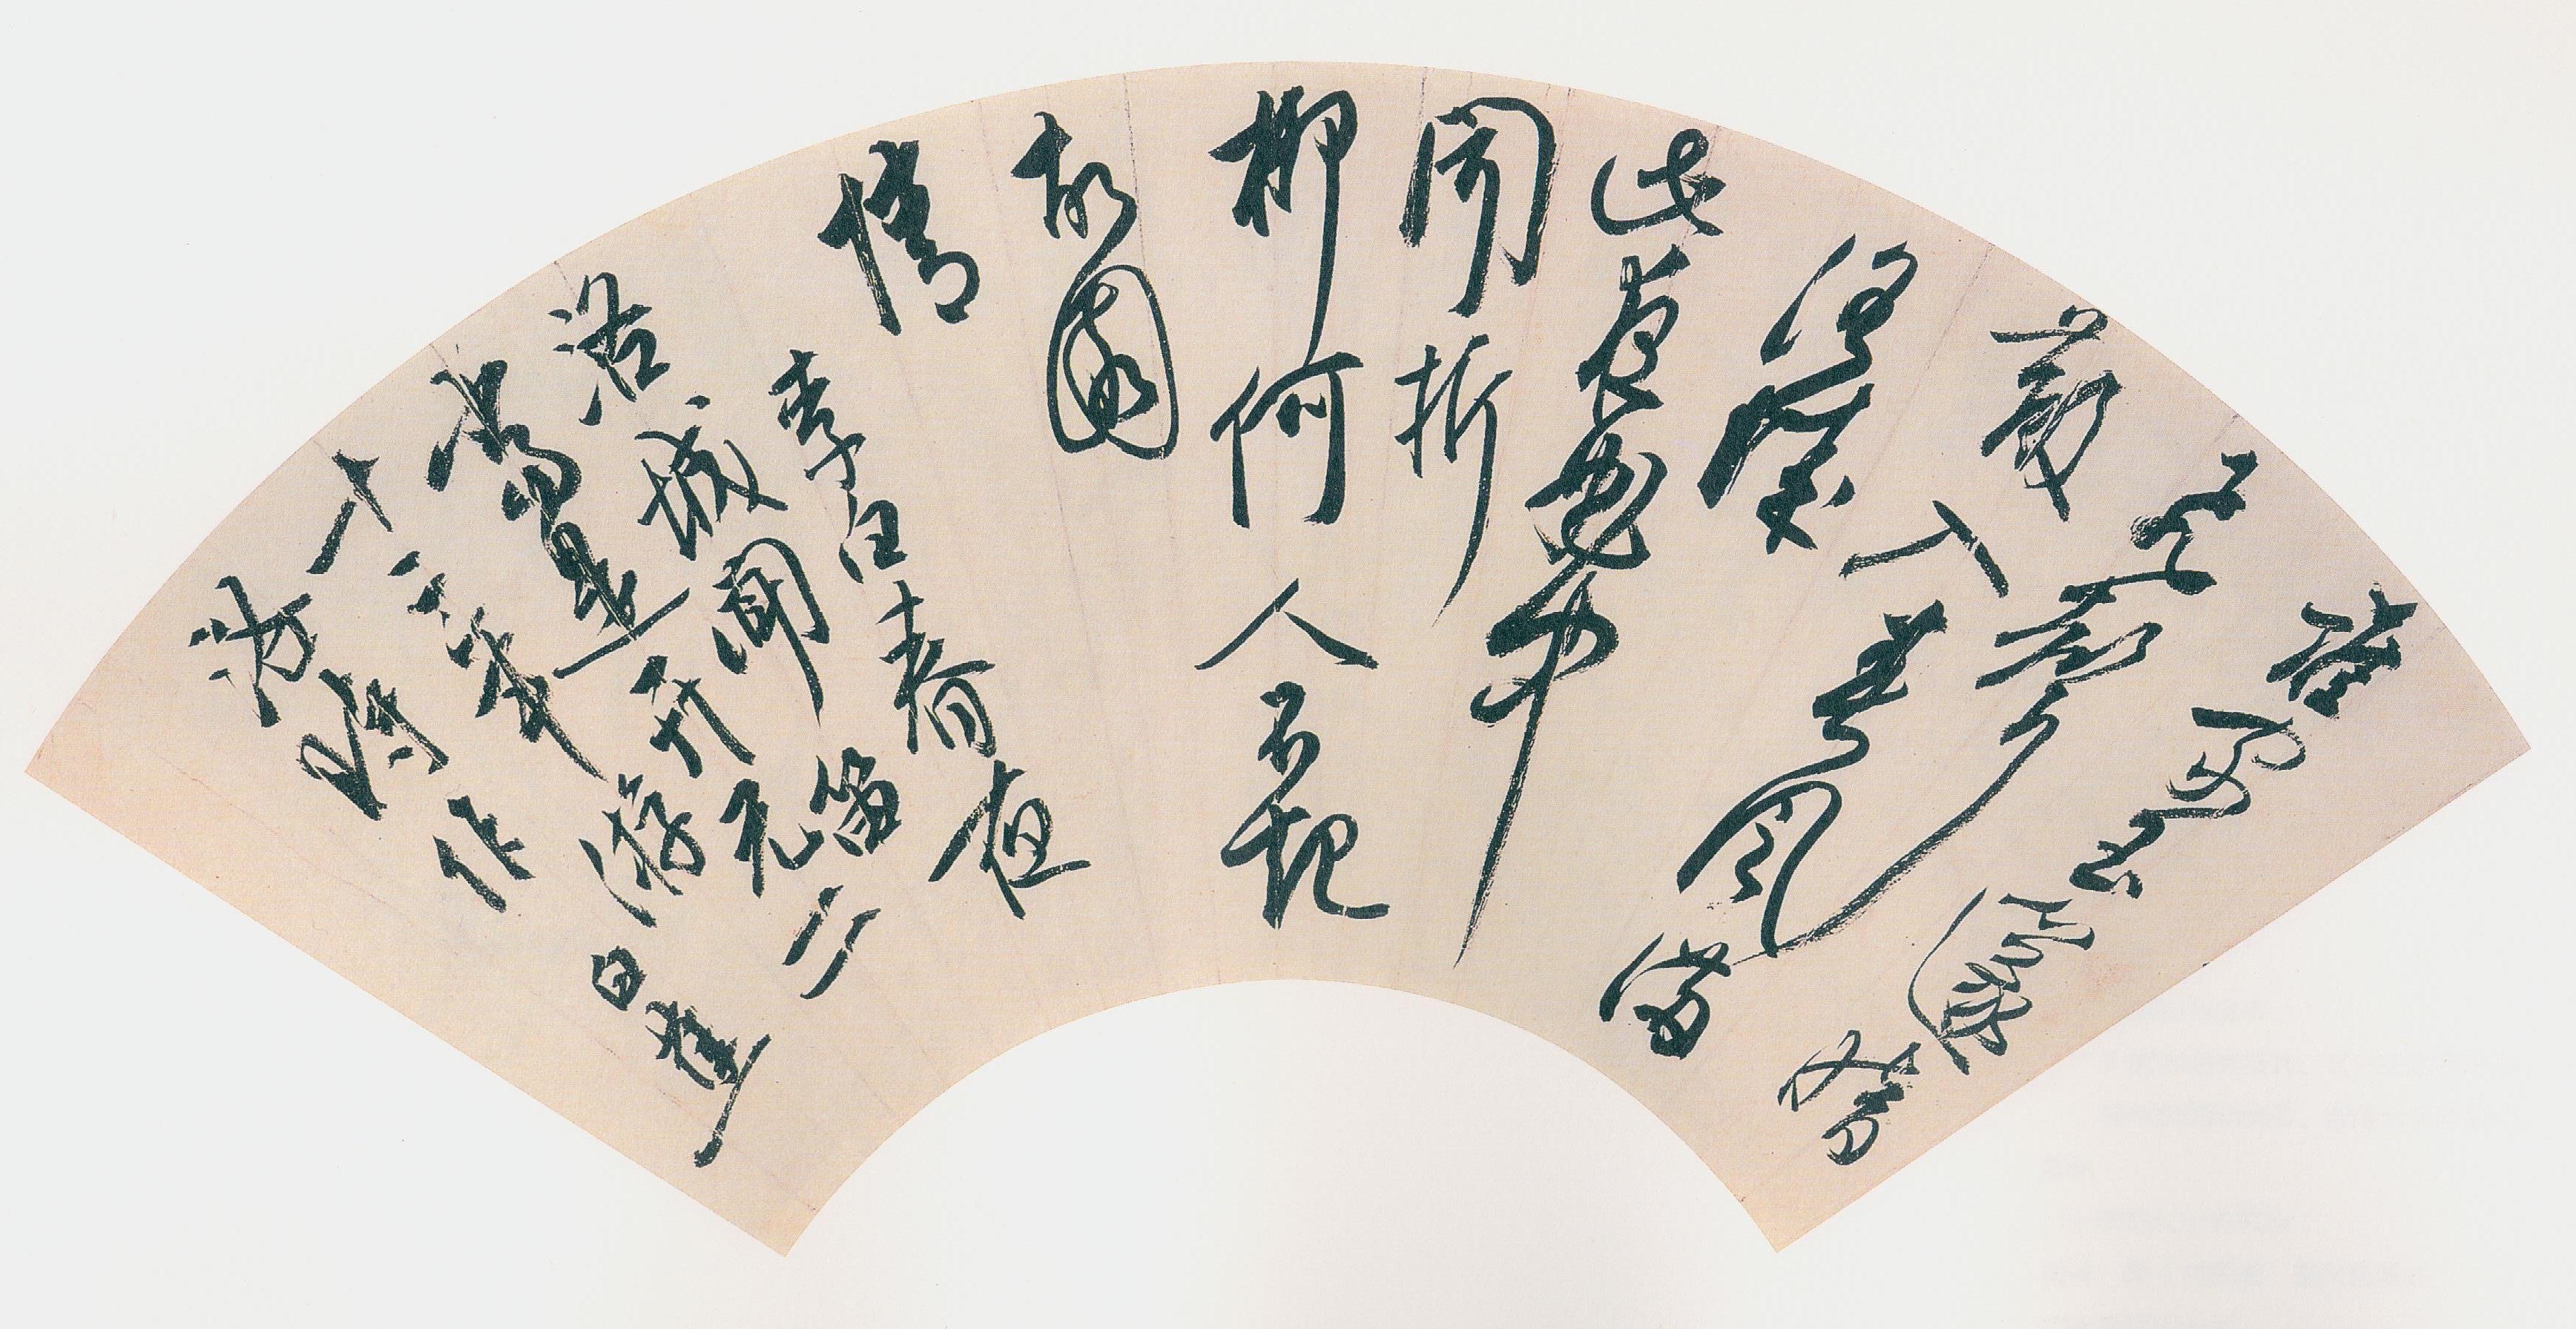 誰家玉篴暗
飛聲
散入春風滿
洛城
此夜曲中
聞折
柳何人不起
故園
情
李白春夜
洛城聞笛
當是开元二
十三年游
洛時作 白蕉